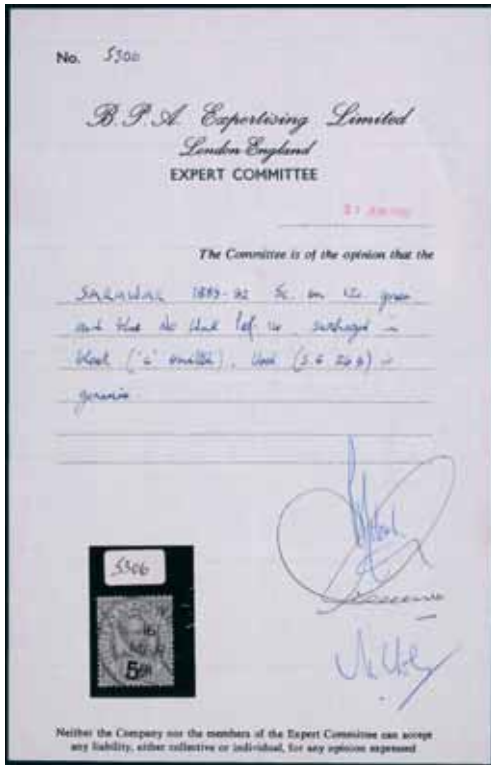 No. 5306
B.P.A. Expertising Limited
London England
EXPERT COMMITTEE
The Committee is of the opinion that the
SARAWAK 1889-92 5c. on 12c. green
and blue No Wmk Perf. 14, surcharged in
black ('C' omitted), Used (S.G. 26b) is
genuine.
5306
5
Neither the Company nor the members of the Expert Committee can accept
any liability, either collective or individual, for any opinion expressed